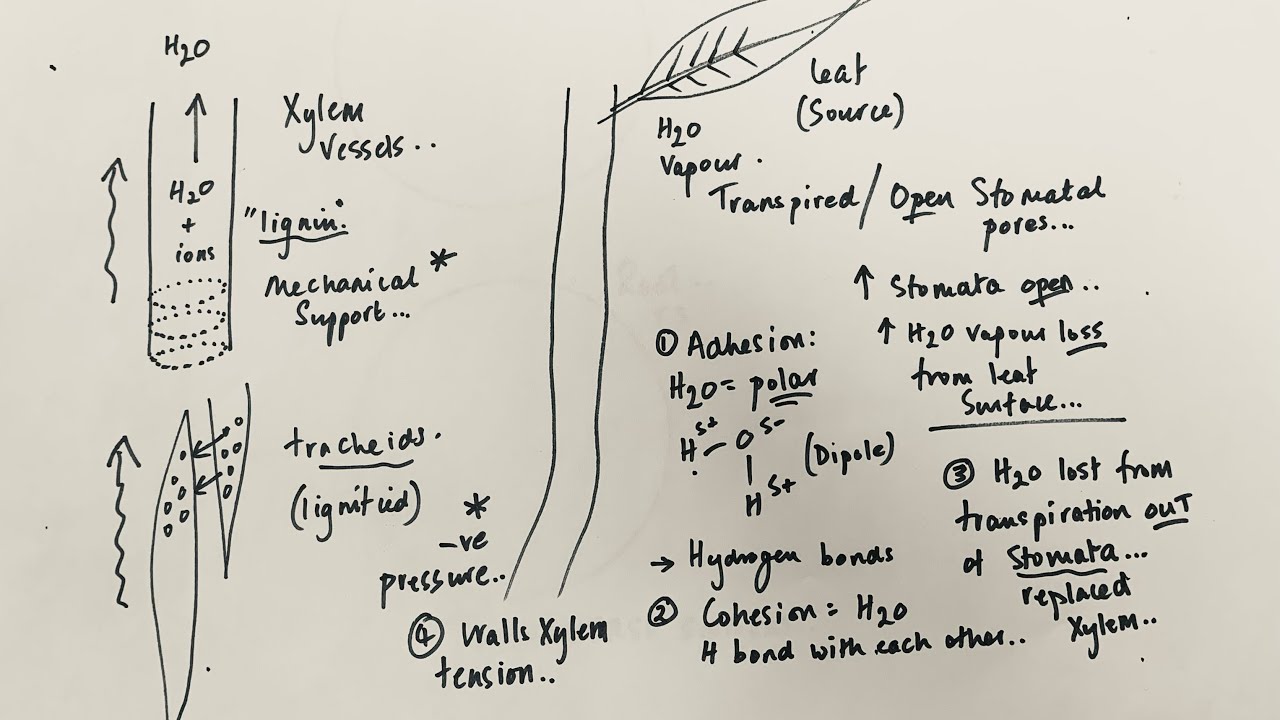 H2O
Xylem
Vessels..
H2O
+
ions
"lignin"
Mechanical *
Support...
tracheids.
(lignified)
*
-ve
pressure..
④ Walls Xylem
tension..
Leaf
(Source)
H2O
Vapour.
Transpired / Open Stomatal
pores...
↑ Stomata open..
↑ H2O vapour loss
from leaf
Surface...
① Adhesion:
H2O = polar
H δ+ O δ- (Dipole)
H δ+
→ Hydrogen bonds
② Cohesion = H2O
H bond with each other..
③ H2O lost from
transpiration OUT
of Stomata...
replaced
Xylem..